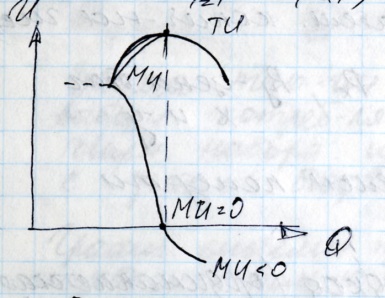 U
TU
MU
MU=0
Q
MU<0